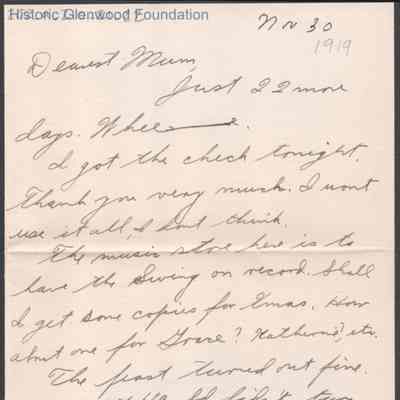 Historic Glenwood Foundation
Nov 30
1919
Dearest Mum,
Just 22 more
days. Whee.
I got the check tonight.
Thank you very much. I wont
use it all, I dont think.
The music store here is to
have the Swing on record. Shall
I get some copies for Xmas. How
about one for Grace? Katherine?, etc.
The feast turned out fine.